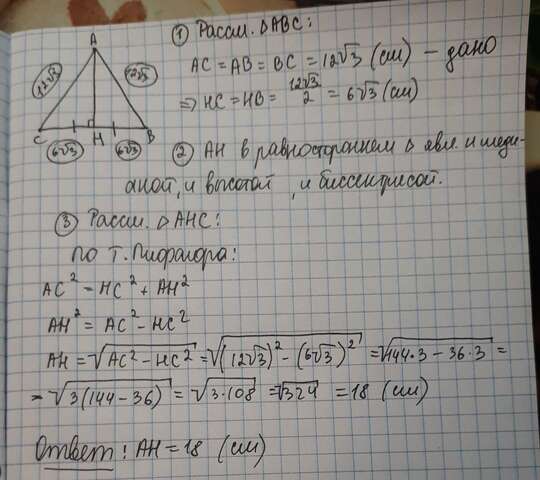 A
12√3
12√3
C
H
B
6√3
6√3
① Рассм. △ABC:
AC = AB = BC = 12√3 (см) – дано
⇒ HC = HB = 12√3/2 = 6√3 (см)
② AH в равностороннем △ явл. и меди-
аной, и высотой, и биссектрисой.
③ Рассм. △AHC:
по т. Пифагора:
AC² = HC² + AH²
AH² = AC² – HC²
AH = √AC² – HC² = √(12√3)² – (6√3)² = √144·3 – 36·3 =
= √3(144 – 36) = √3·108 = √324 = 18 (см)
Ответ: AH = 18 (см)